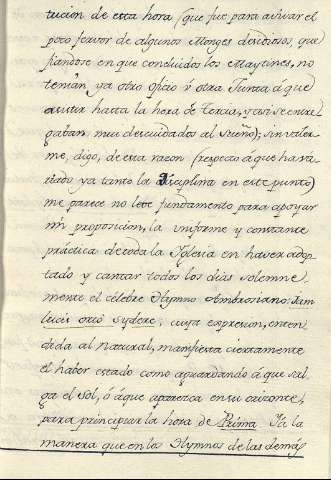 tucion de esta hora (que fue, para avivar el
poco fervor de algunos Monges desidiosos, que
fiandose en que concluidos los Maytines, no
tenian ya otro oficio ù otra Junta á que
asistir hasta la hora de Tercia, y asi se entre
gaban mui descuidados al sueño); sin valer
me, digo, de esta razon (respecto á que ha va
riado ya tanto la disciplina en este punto)
me parece no leve fundamento para apoyar
mi proposicion, la uniforme y constante
práctica de toda la Iglesia en haver adop
tado y cantar todos los dias solemne
mente el célebre Hymno Ambrosiano: Jam
lucis orto sydere, cuya expresion, enten
dida al natural, manifiesta ciertamente
el haber estado como aguardando á que sal
ga el sol, ó á que aparezca en su orizonte,
para principiar la hora de Prima. Y á la
manera que en los Hymnos de las demás